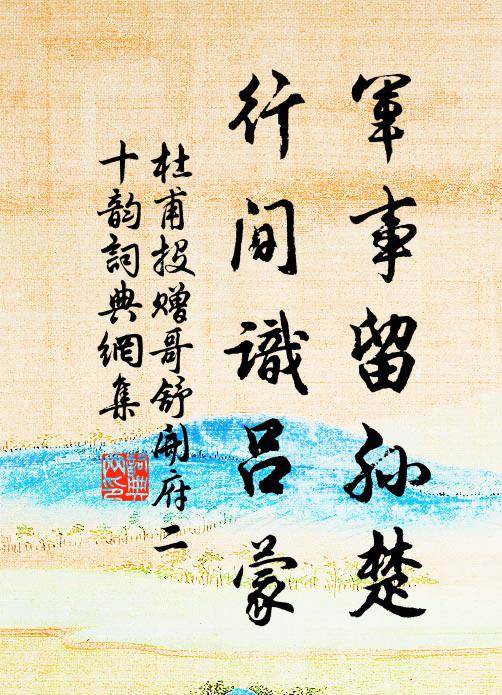 軍事留孫楚
行間識呂蒙
杜甫投赠哥舒開府二
十韵詞典網集